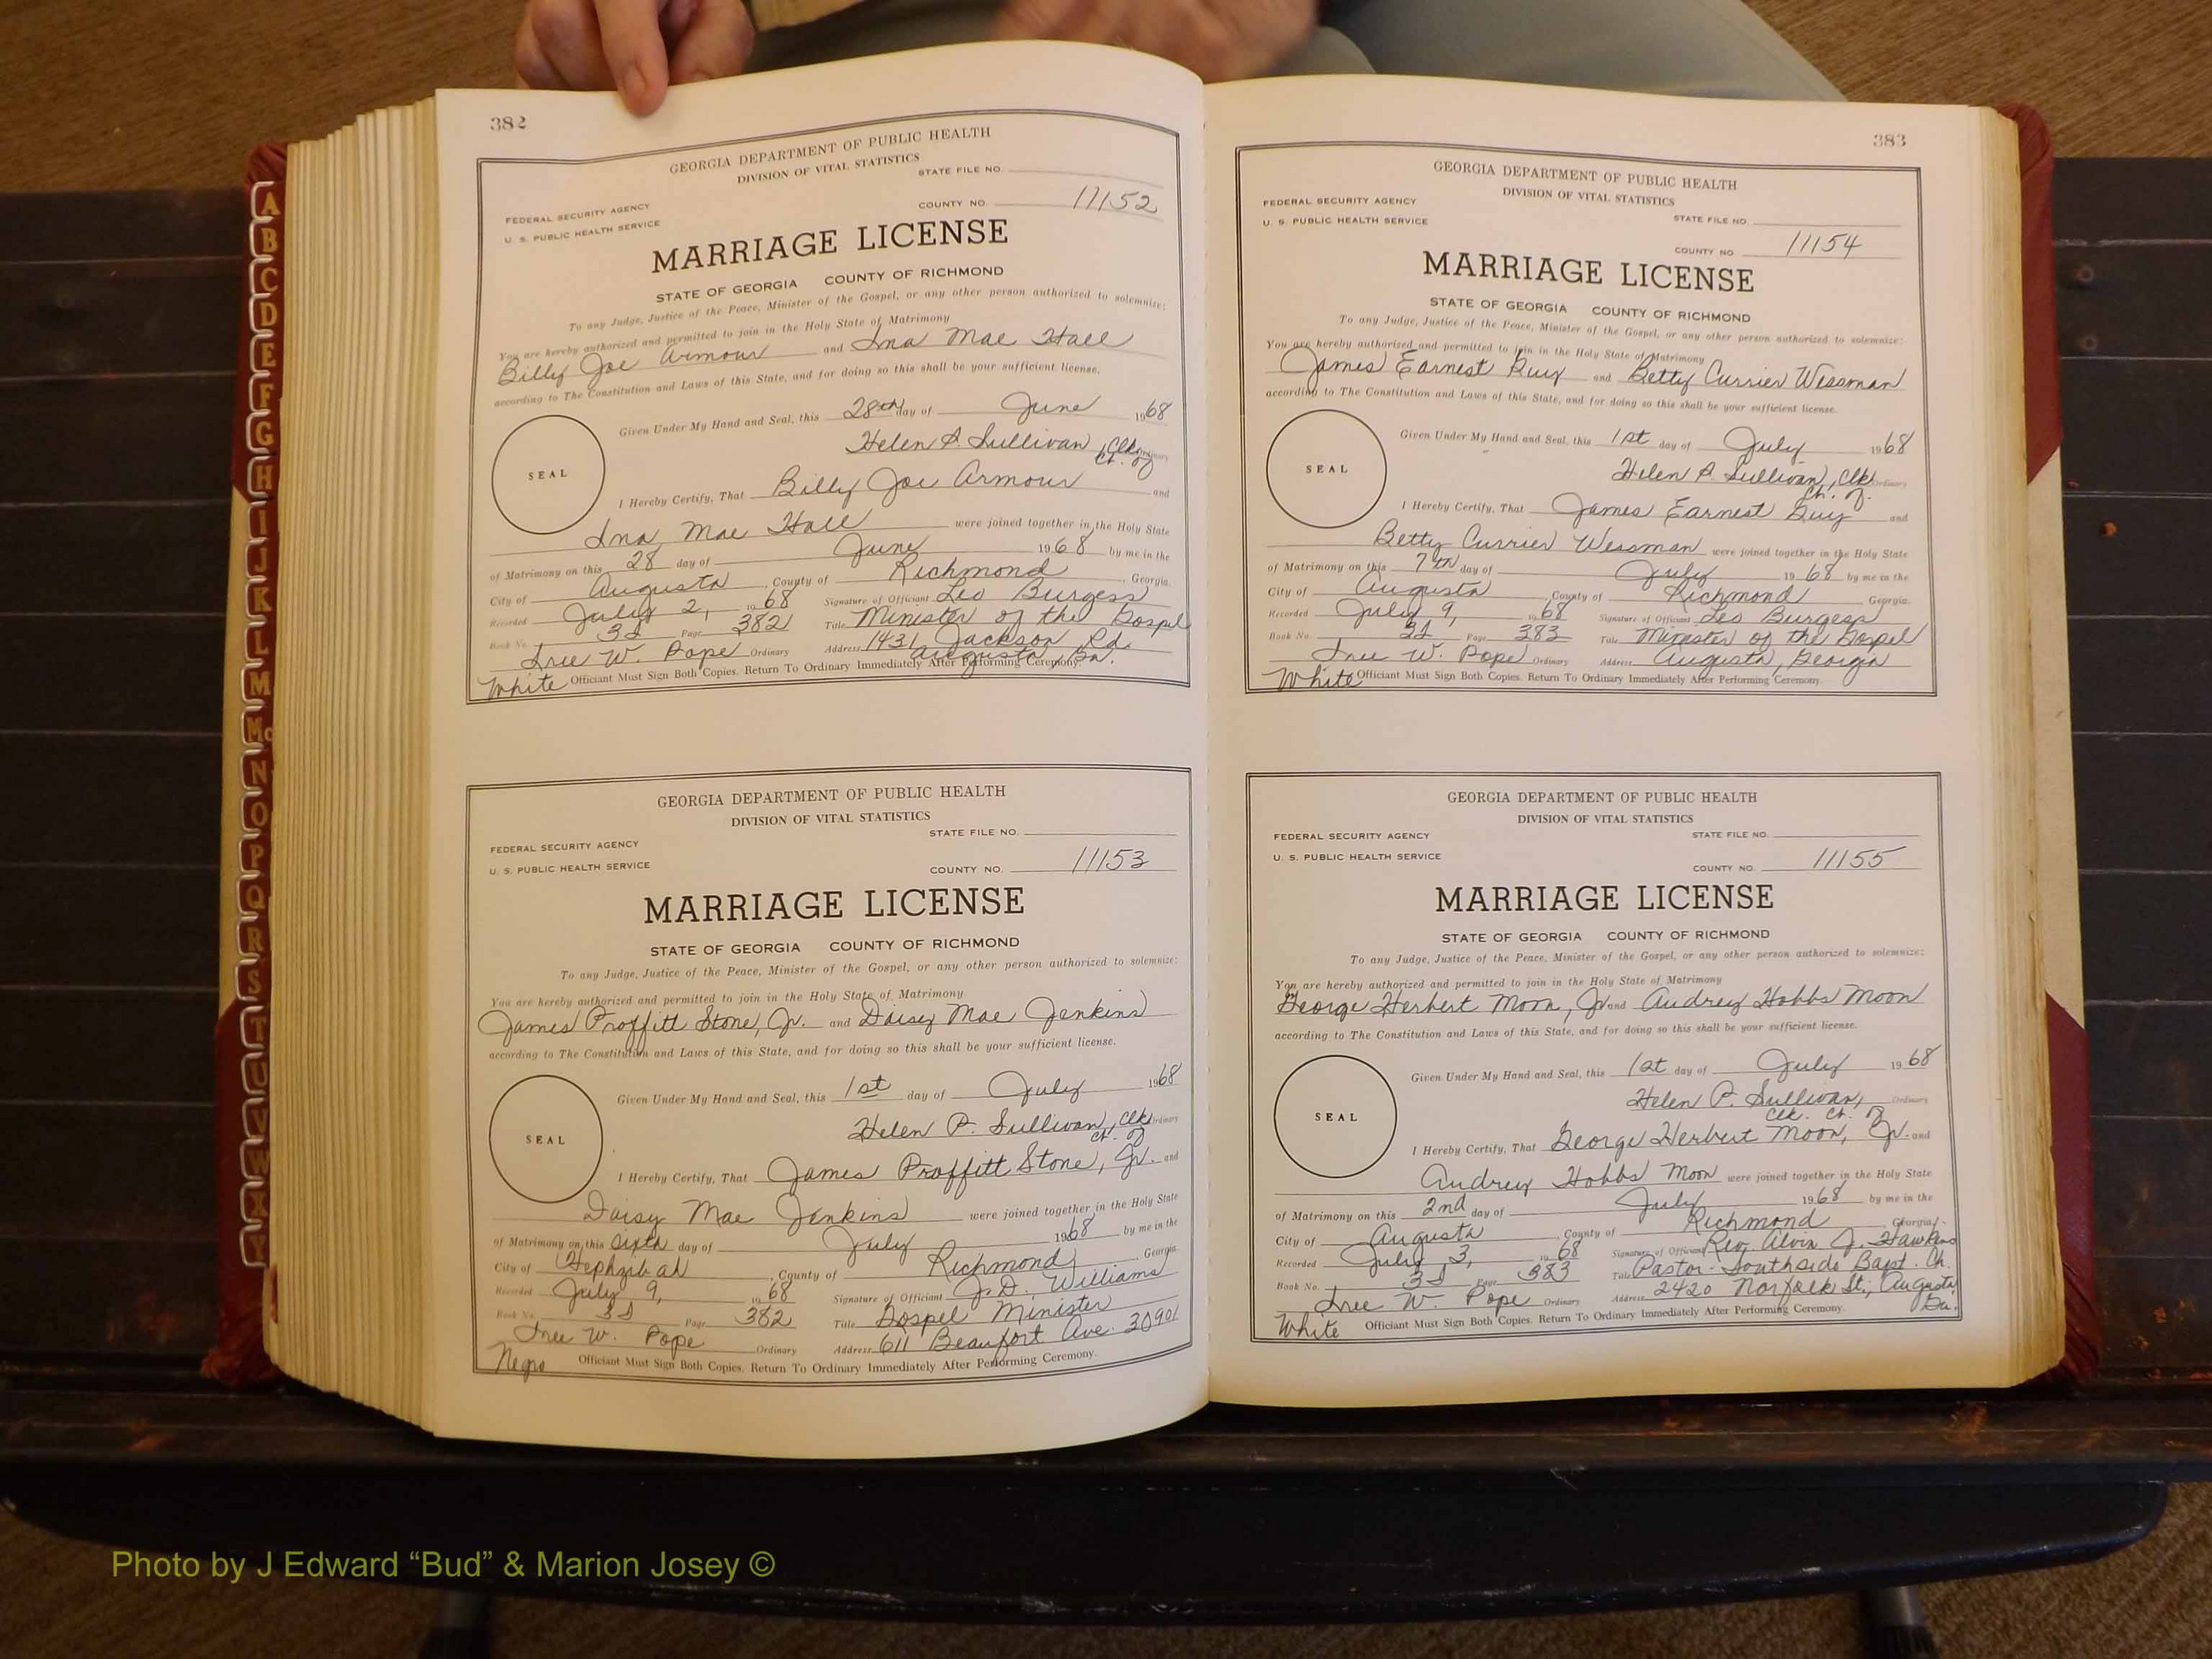 382
GEORGIA DEPARTMENT OF PUBLIC HEALTH
DIVISION OF VITAL STATISTICS
STATE FILE NO.
FEDERAL SECURITY AGENCY
COUNTY NO. 11152
U. S. PUBLIC HEALTH SERVICE
MARRIAGE LICENSE
STATE OF GEORGIA COUNTY OF RICHMOND
To any Judge, Justice of the Peace, Minister of the Gospel, or any other person authorized to solemnize:
You are hereby authorized and permitted to join in the Holy State of Matrimony
Billy Joe Armour and Ina Mae Hall
according to The Constitution and Laws of this State, and for doing so this shall be your sufficient license.
Given Under My Hand and Seal, this 28th day of June 1968
Helen P. Sullivan, Clk. Ordinary
Ct. of
SEAL
I Hereby Certify, That Billy Joe Armour and
Ina Mae Hall were joined together in the Holy State
of Matrimony on this 28 day of June 1968 by me in the
City of Augusta, County of Richmond, Georgia.
Recorded July 2, 1968 Signature of Officiant Leo Burgess
Book No. 3J Page 382 Title Minister of the Gospel
W. Pope Ordinary Address 1431 Jackson Rd.
Augusta, Ga.
White Officiant Must Sign Both Copies. Return To Ordinary Immediately After Performing Ceremony.
GEORGIA DEPARTMENT OF PUBLIC HEALTH
DIVISION OF VITAL STATISTICS
STATE FILE NO.
FEDERAL SECURITY AGENCY
U. S. PUBLIC HEALTH SERVICE
COUNTY NO. 11153
MARRIAGE LICENSE
STATE OF GEORGIA COUNTY OF RICHMOND
To any Judge, Justice of the Peace, Minister of the Gospel, or any other person authorized to solemnize:
You are hereby authorized and permitted to join in the Holy State of Matrimony
James Proffitt Stone, Jr. and Daisy Mae Jenkins
according to The Constitution and Laws of this State, and for doing so this shall be your sufficient license.
Given Under My Hand and Seal, this 1st day of July 1968
Helen P. Sullivan, Clk. Ordinary
Ct. of
SEAL
I Hereby Certify, That James Proffitt Stone, Jr. and
Daisy Mae Jenkins were joined together in the Holy State
of Matrimony on this sixth day of July 1968 by me in the
City of Hephzibah, County of Richmond, Georgia
Recorded July 9, 1968 Signature of Officiant J. D. Williams
Book No. 3J Page 382 Title Gospel Minister
W. Pope Ordinary Address 611 Beaufort Ave. 30901
Negro Officiant Must Sign Both Copies. Return To Ordinary Immediately After Performing Ceremony.
383
GEORGIA DEPARTMENT OF PUBLIC HEALTH
DIVISION OF VITAL STATISTICS
FEDERAL SECURITY AGENCY
STATE FILE NO.
U. S. PUBLIC HEALTH SERVICE
COUNTY NO 11154
MARRIAGE LICENSE
STATE OF GEORGIA COUNTY OF RICHMOND
To any Judge, Justice of the Peace, Minister of the Gospel, or any other person authorized to solemnize:
You are hereby authorized and permitted to join in the Holy State of Matrimony
James Earnest Guy and Betty Currier Wessman
according to The Constitution and Laws of this State, and for doing so this shall be your sufficient license.
Given Under My Hand and Seal, this 1st day of July 1968
Helen P. Sullivan, Clk. Ordinary
Ct. of.
SEAL
I Hereby Certify, That James Earnest Guy and
Betty Currier Wessman were joined together in the Holy State
of Matrimony on this 7th day of July 1968 by me in the
City of Augusta, County of Richmond, Georgia.
Recorded July 9, 1968 Signature of Officiant Leo Burgess
Book No. 3J Page 383 Title Minister of the Gospel
W. Pope Ordinary Address Augusta, Georgia
White Officiant Must Sign Both Copies. Return To Ordinary Immediately After Performing Ceremony.
GEORGIA DEPARTMENT OF PUBLIC HEALTH
DIVISION OF VITAL STATISTICS
FEDERAL SECURITY AGENCY
STATE FILE NO.
U. S. PUBLIC HEALTH SERVICE
COUNTY NO. 11155
MARRIAGE LICENSE
STATE OF GEORGIA COUNTY OF RICHMOND
To any Judge, Justice of the Peace, Minister of the Gospel, or any other person authorized to solemnize:
You are hereby authorized and permitted to join in the Holy State of Matrimony
George Herbert Moon, Jr and Audrey Hobbs Moon
according to The Constitution and Laws of this State, and for doing so this shall be your sufficient license.
Given Under My Hand and Seal, this 1st day of July 1968
Helen P. Sullivan, Ordinary
Clk. Ct. of
SEAL
I Hereby Certify, That George Herbert Moon, Jr. and
Audrey Hobbs Moon were joined together in the Holy State
of Matrimony on this 2nd day of July 1968 by me in the
City of Augusta, County of Richmond, Georgia.
Recorded July 3, 1968 Signature of Officiant Rev. Alvin J. Hawkins
Book No. 3J Page 383 Title Pastor - Southside Bapt. Ch.
W. Pope Ordinary Address 2420 Norfolk St., Augusta,
Ga.
White Officiant Must Sign Both Copies. Return To Ordinary Immediately After Performing Ceremony.
A
B
C
D
E
F
G
H
I
J
K
L
M
Mc
N
O
P
Q
R
S
T
U
V
W
X
Y
Photo by J Edward “Bud” & Marion Josey ©